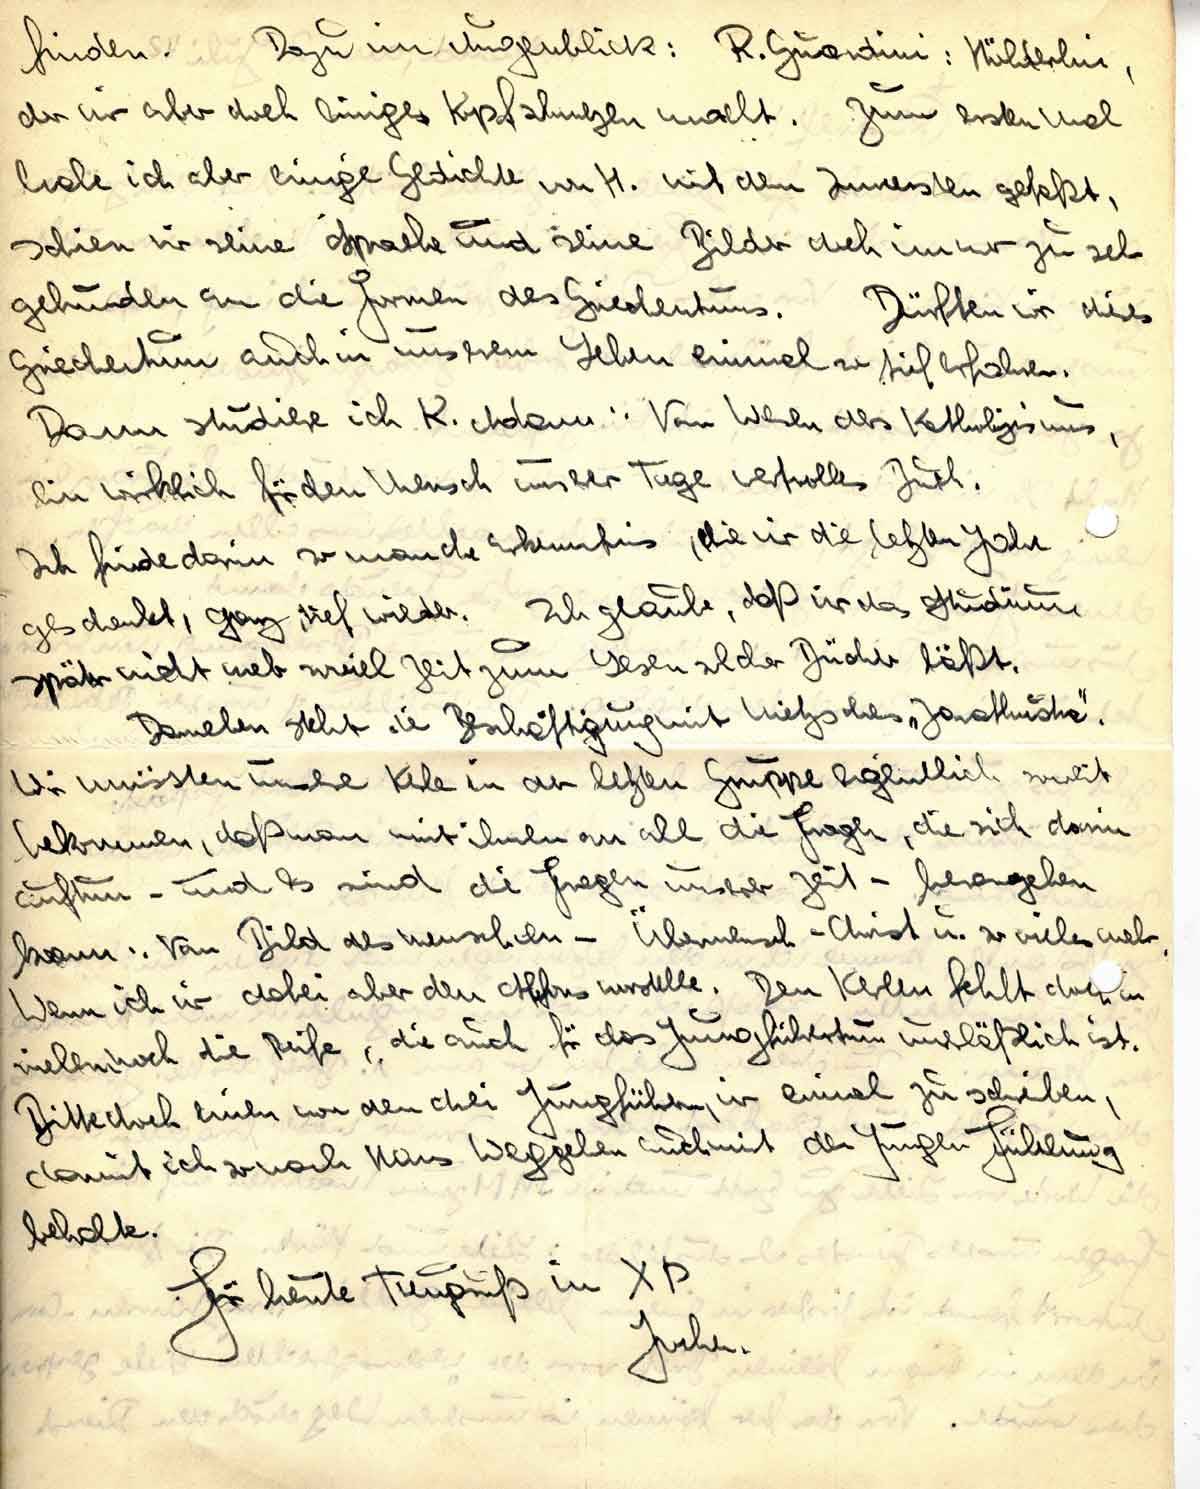 finden. Dazu im Augenblick: R. Guardini: Hölderlin,
der mir aber doch einiges Kopfschmerzen macht. Zum ersten Mal
habe ich aber einige Gedichte von H. mit dem Innersten gefaßt,
schien mir seine Sprache und seine Bilder doch immer zu sehr
gebunden an die Formen des Griechentums. Dürften wir dieses
Griechentum auch in unserem Leben einmal so tief erfahren.
Dann studiere ich K. Adam: Vom Wesen des Katholizismus,
ein wirklich für den Mensch unserer Tage wertvolles Buch.
Ich finde darin so manche Erkenntnis, die mir die letzten Jahre
geschenkt, ganz tief wieder. Ich glaube, daß mir das Studium
später nicht mehr soviel Zeit zum Lesen solcher Bücher läßt.
Daneben steht die Beschäftigung mit Nietzsches „Zarathustra".
Wir müssten unsere Kerle in der letzten Gruppe eigentlich soweit
bekommen, daß man mit ihnen an all die Fragen, die sich darin
auftun - und es sind die Fragen unserer Zeit - herangehen
kann: Vom Bild des Menschen - Übermensch - Christ u. so vieles mehr.
Wenn ich mir dabei aber den Alfons vorstelle. Den Kerlen fehlt doch in
vielem noch die Reife, die auch für das Jungführertum unerläßlich ist.
Bitte doch einen von den drei Jungführern, mir einmal zu schreiben,
damit ich so nach Hans Weggehen auch mit der jungen Führung
behalte.
Für heute Treugruß in XP
Joche.